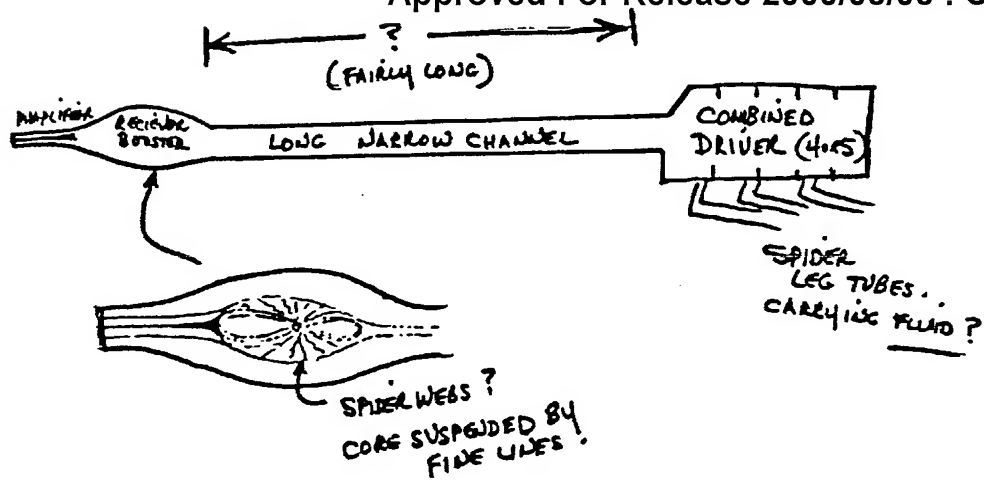 Approved For Release 2000/08/08 : C
?
(FAIRLY LONG)
AMPLIFIER
RECIEVER
BOOSTER
LONG NARROW CHANNEL
COMBINED
DRIVER (4 or 5)
SPIDER
LEG TUBES..
CARRYING FLUID?
SPIDER WEBS?
CORE SUSPENDED BY
FINE LINES!